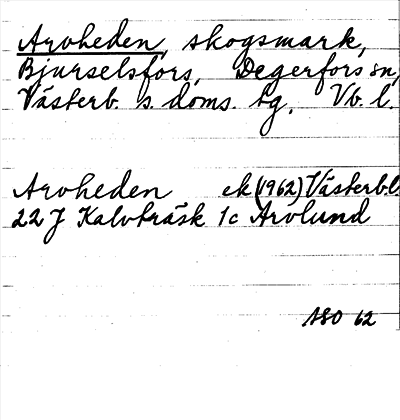 Arvheden, skogsmark,
Bjurselsfors, Degerfors sn,
Västerb. s. doms. tg. Vb. l.
Arvheden ek (1962) Västerb.l.
22 J Kalvträsk 1c Arvlund
ASO 62